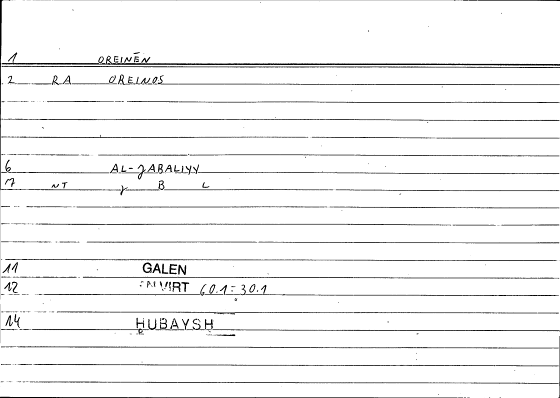 1 OREINĒN
2 RA OREINOS
6 AL-ǦABALIYY
7 NT ǧ B L
11 GALEN
12 VIRT 60.1 = 30.1
14 HUBAYSH